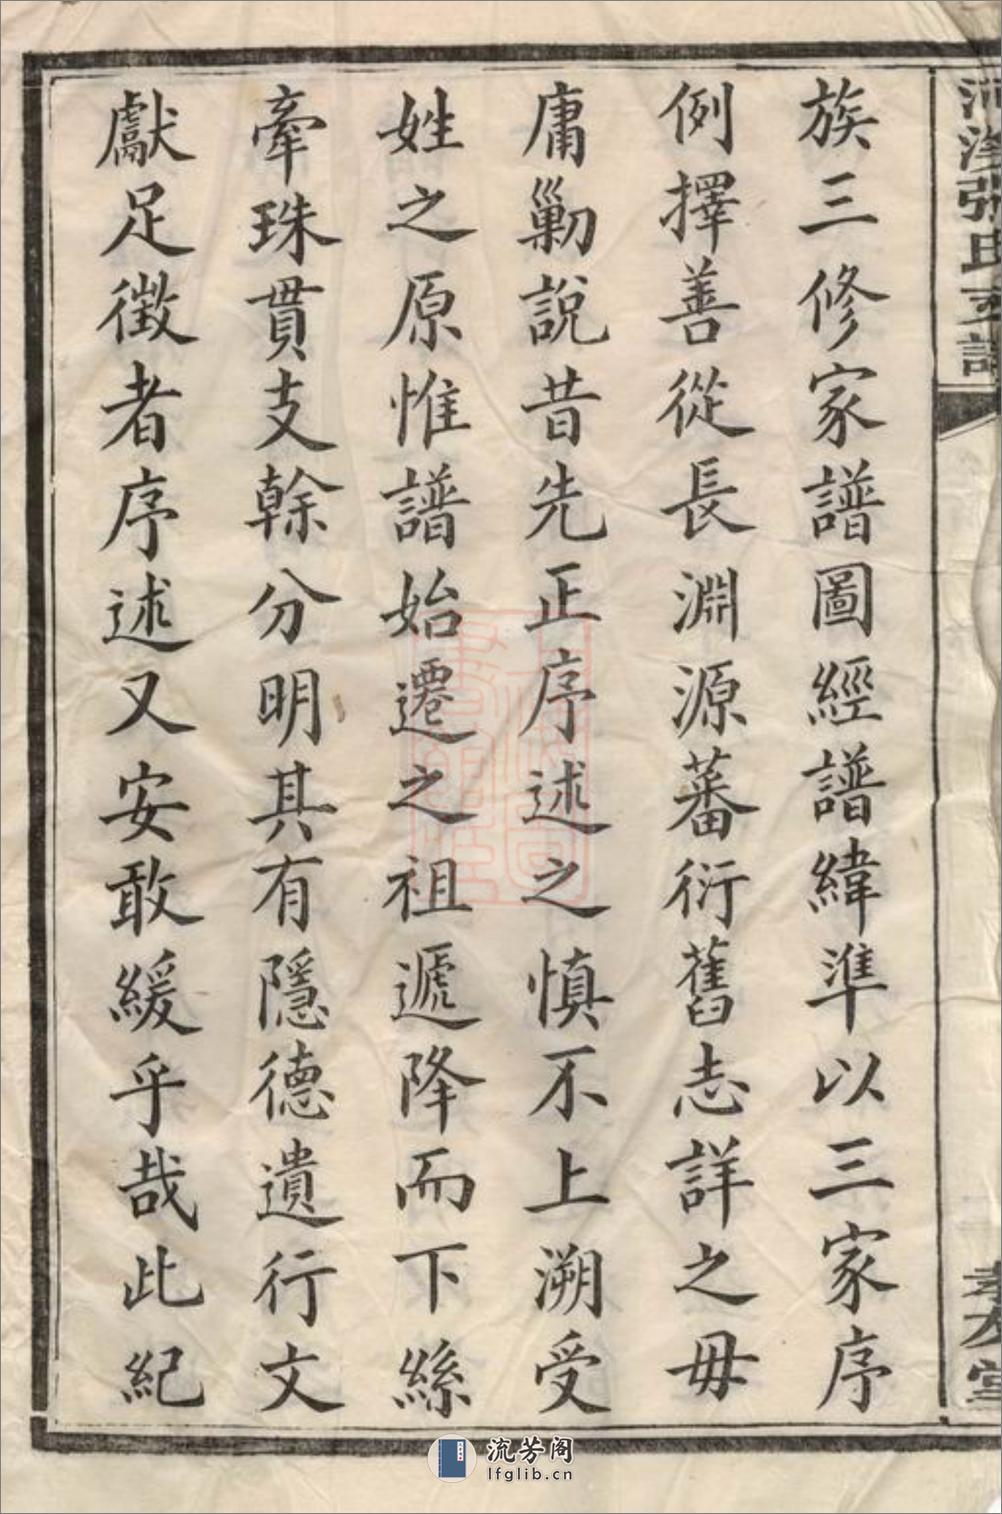 族三修家譜圖經譜緯準以三家序
例擇善從長淵源蕃衍舊志詳之毋
庸勦說昔先正序述之慎不上溯受
姓之原惟譜始遷之祖遞降而下絲
牽珠貫支榦分明其有隱德遺行文
獻足徵者序述又安敢緩乎哉此紀
張氏支譜
孝友堂
流芳阁
lfglib.cn